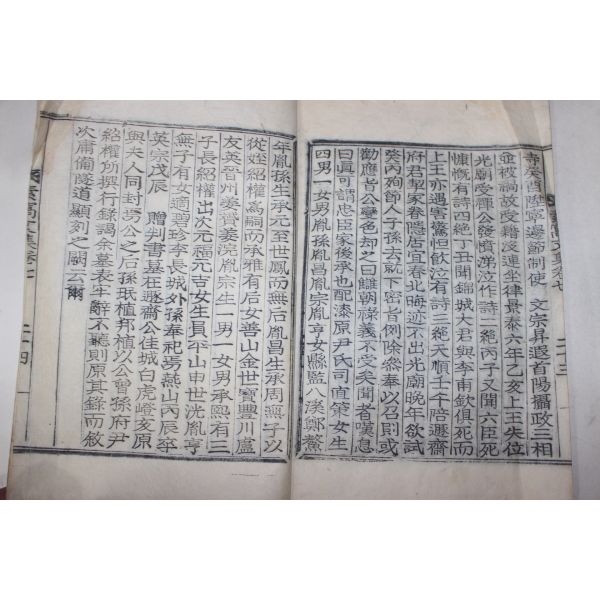 寺癸酉陞寧邊節制使 文宗昇遐首陽攝政三相
並被禍故受籍沒連坐律景泰六年乙亥上王失位
光廟受禪公發憤涕泣作詩一絶丙子又聞六臣死
慷慨有詩四絶丁丑聞錦城大君與李甫欽俱死而
上王亦遇害驚怛飮泣有詩三絶天順壬午陪遯齋
府君挈家眷隱居宜春北晦迹不出光廟晚年欲試
癸丙殉節人子孫去就下密旨例除叅奉以召則或
勸應旨公變色却之曰雖朝祿義不受矣聞者嘆息
曰眞可謂忠臣家後承也配漆原尹氏司直策女生
四男一女男胤孫胤昌胤宗胤亨女縣監八溪鄭釐
年胤孫生承元至世鳳而無后胤昌生承周無子以
從姪紹權爲嗣而承雅有后女善山金世寶豊川盧
友英晋州姜齊姜澆胤宗生一男一女男承熙有三
子長紹權出次元福元吉女生員平山申世洸胤亨
無子有女適碧珍李長城外孫奉祀勞燕山丙辰卒
英宗戊辰 贈判書墓在遯齋公佳城白虎嶝亥原
與夫人同封焉公之后孫珉植邦植以公曾孫府尹
紹權所撰行錄謁余墓表牢辭不聽則原其錄而敘
次庸備隧道顯刻之闕云爾